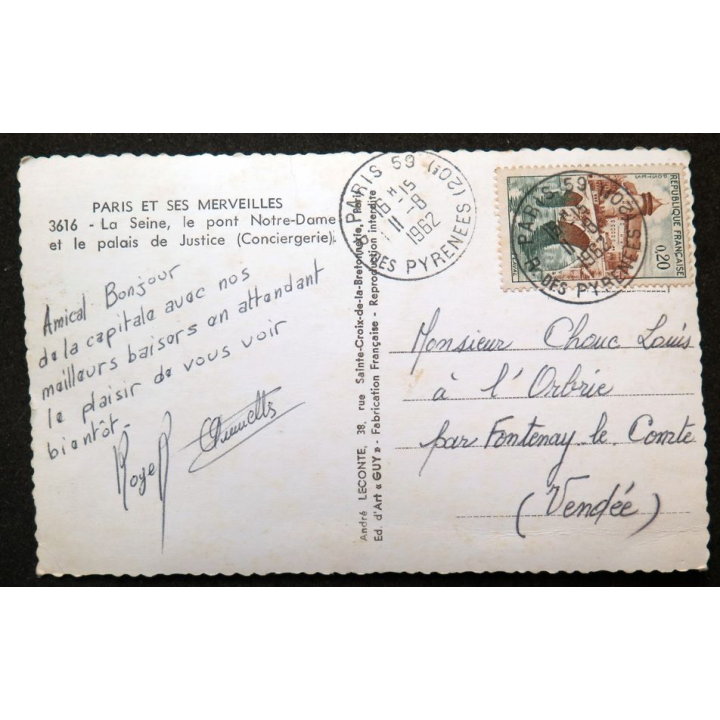 PARIS ET SES MERVEILLES
3616 - La Seine, le pont Notre-Dame
et le palais de Justice (Conciergerie).
Amical Bonjour
de la capitale avec nos
meilleurs baisers en attendant
le plaisir de vous voir
bientôt.
Roger
André LECONTE, 38, rue Sainte-Croix-de-la-Bretonnerie, Paris
Ed. d'Art « GUY » - Fabrication Française - Reproduction interdite
PARIS 59 (20E)
16 H 15
11 - 8
1962
R. DES PYRENEES
POSTES
REPUBLIQUE FRANÇAISE
0,20
PARIS 59 (20E)
16 H 15
11 - 8
1962
R. DES PYRENEES
Monsieur Chouc Louis
à l'Orbrie
par Fontenay le Comte
(Vendée)